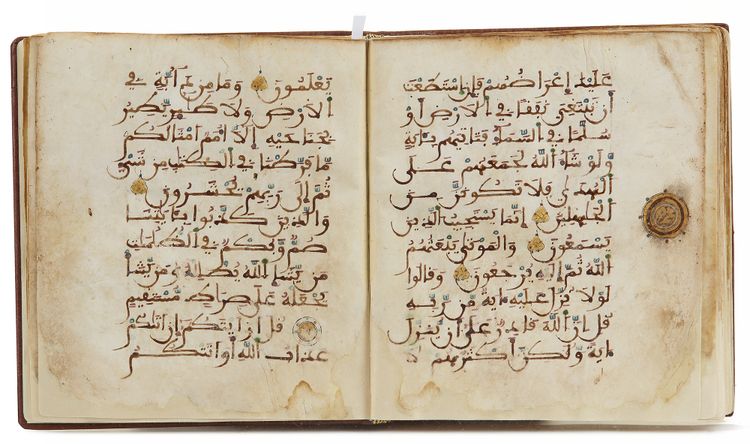 عليك إعراضهم فإن استطعت
أن تبتغي نفقا في الأرض أو
سلما في السماء فتأتيهم بآية
ولو شاء الله لجمعهم على
الهدى فلا تكونن من
الجهلين إنما يستجيب الذين
يسمعون والموتى يبعثهم
الله ثم إليه يرجعون وقالوا
لولا نزل عليه ءاية من ربه
قل إن الله قادر على أن ينزل
ءاية ولكن أكثرهم لا
يعلمون وما من دابة في
الأرض ولا طئر يطير
بجناحيه إلا أمم أمثالكم
ما فرطنا في الكتب من شيء
ثم إلى ربهم يحشرون
والذين كذبوا بآيتنا
صم وبكم في الظلمات
من يشإ الله يضلله ومن يشأ
يجعله على صراط مستقيم
قل أرايتكم إن أتيكم
عذاب الله أو أتتكم